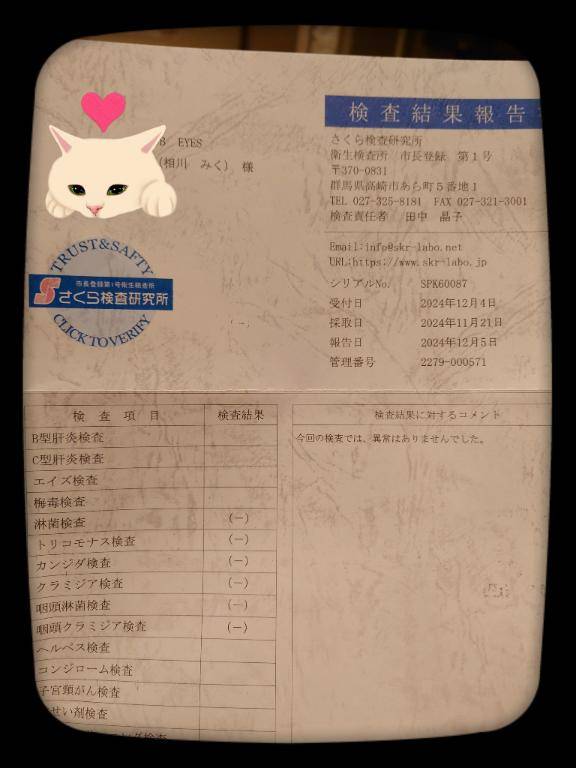 検査結果報告
B EYES
(相川 みく) 様
さくら検査研究所
衛生検査所 市長登録 第1号
〒370-0831
群馬県高崎市あら町5番地1
TEL 027-325-8181 FAX 027-321-3001
検査責任者 田中 晶子
Email:info@skr-labo.net
URL:https://www.skr-labo.jp
シリアルNo. SPK60087
受付日 2024年12月4日
採取日 2024年11月21日
報告日 2024年12月5日
管理番号 2279-000571
TRUST&SAFTY
市長登録第1号衛生検査所
さくら検査研究所
CLICK TO VERIFY
検査項目 検査結果
B型肝炎検査
C型肝炎検査
エイズ検査
梅毒検査
淋菌検査 (-)
トリコモナス検査 (-)
カンジダ検査 (-)
クラミジア検査 (-)
咽頭淋菌検査 (-)
咽頭クラミジア検査 (-)
ヘルペス検査
コンジローム検査
子宮頸がん検査
せい剤検査
検査結果に対するコメント
今回の検査では、異常はありませんでした。